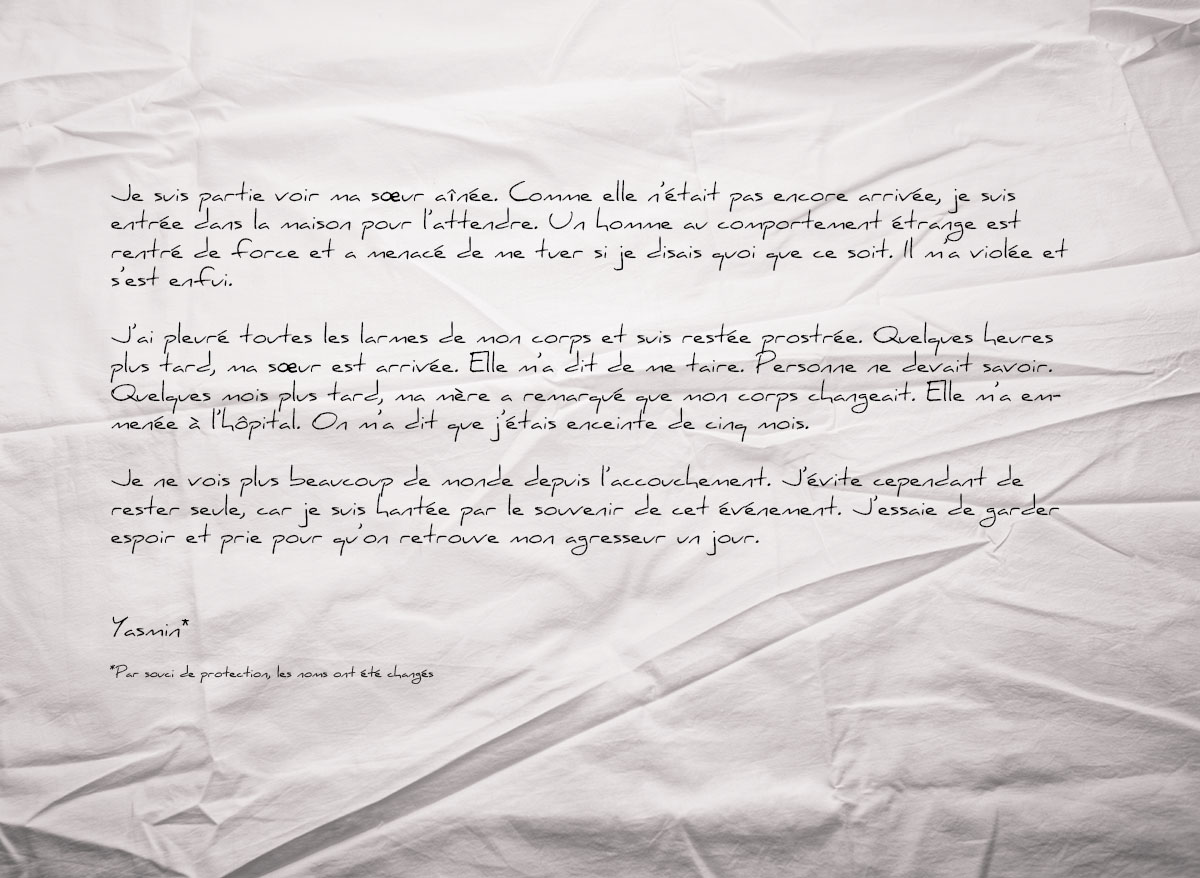 Je suis partie voir ma sœur aînée. Comme elle n'était pas encore arrivée, je suis
entrée dans la maison pour l'attendre. Un homme au comportement étrange est
rentré de force et a menacé de me tuer si je disais quoi que ce soit. Il m'a violée et
s'est enfui.
J'ai pleuré toutes les larmes de mon corps et suis restée prostrée. Quelques heures
plus tard, ma sœur est arrivée. Elle m'a dit de me taire. Personne ne devait savoir.
Quelques mois plus tard, ma mère a remarqué que mon corps changeait. Elle m'a em-
menée à l'hôpital. On m'a dit que j'étais enceinte de cinq mois.
Je ne vois plus beaucoup de monde depuis l'accouchement. J'évite cependant de
rester seule, car je suis hantée par le souvenir de cet événement. J'essaie de garder
espoir et prie pour qu'on retrouve mon agresseur un jour.
Yasmin*
*Par souci de protection, les noms ont été changés